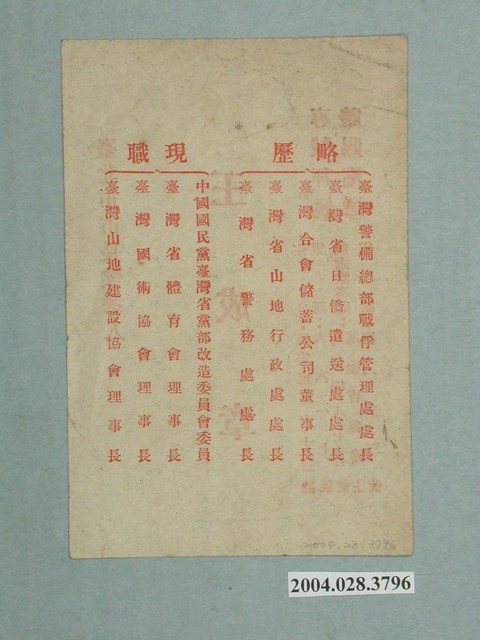 略歷
臺灣警備總部戰俘管理處處長
臺灣省日僑遣送處處長
臺灣合會儲蓄公司董事長
臺灣省山地行政處處長
臺灣省警務處處長
現職
中國國民黨臺灣省黨部改造委員會委員
臺灣省體育會理事長
臺灣國術協會理事長
臺灣山地建設協會理事長
王成章
2004.28.3796
2004.028.3796